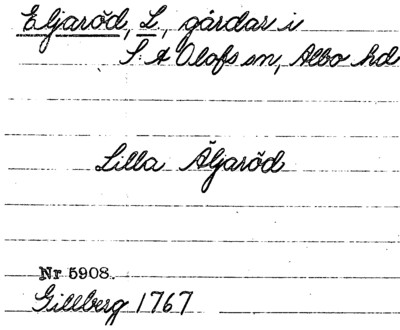 Eljaröd, L., gårdar i
S. A Olofs sn, Albo hd
Lilla Äljaröd
Nr 5908.
Gillberg 1767